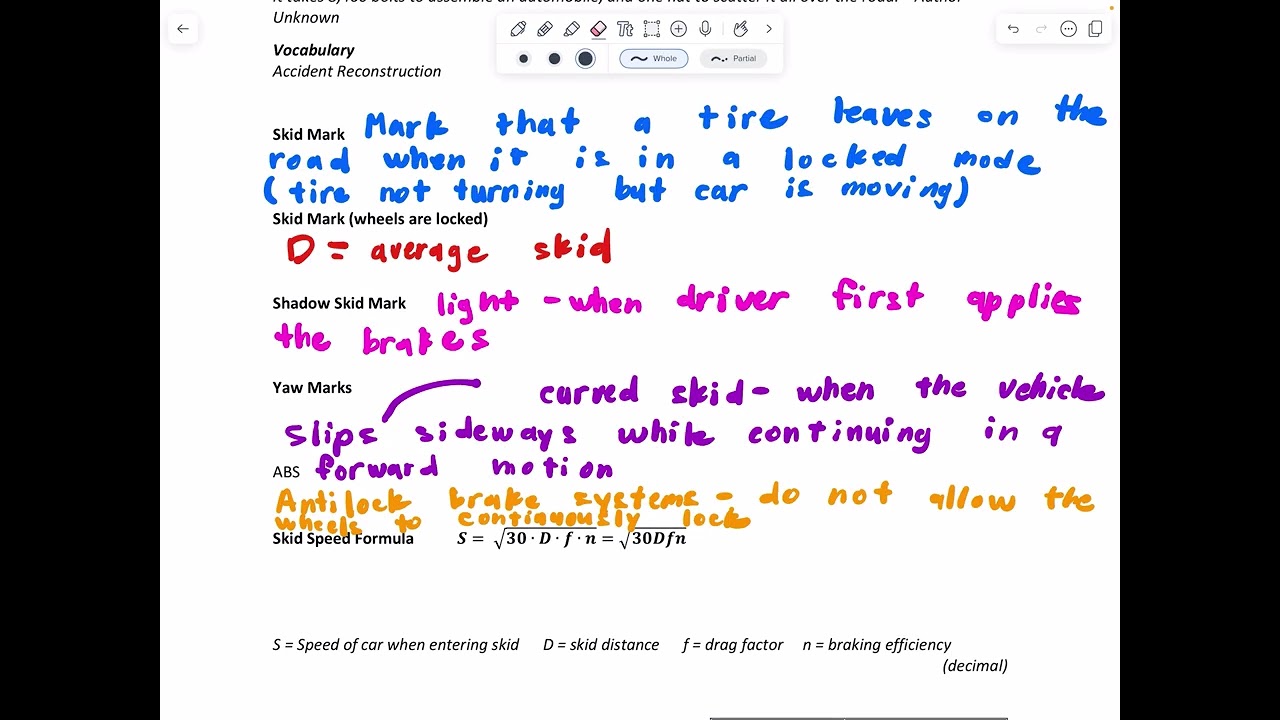 Unknown
Tt
Vocabulary
Whole
Partial
Accident Reconstruction
Skid Mark Mark that a tire leaves on the
road when it is in a locked mode
(tire not turning but car is moving)
Skid Mark (wheels are locked)
D = average skid
Shadow Skid Mark light - when driver first applies
the brakes
Yaw Marks curved skid- when the vehicle
slips sideways while continuing in a
ABS forward motion
Antilock brake systems - do not allow the
wheels to continuously lock
Skid Speed Formula S = √30 · D · f · n = √30Dfn
S = Speed of car when entering skid D = skid distance f = drag factor n = braking efficiency
(decimal)